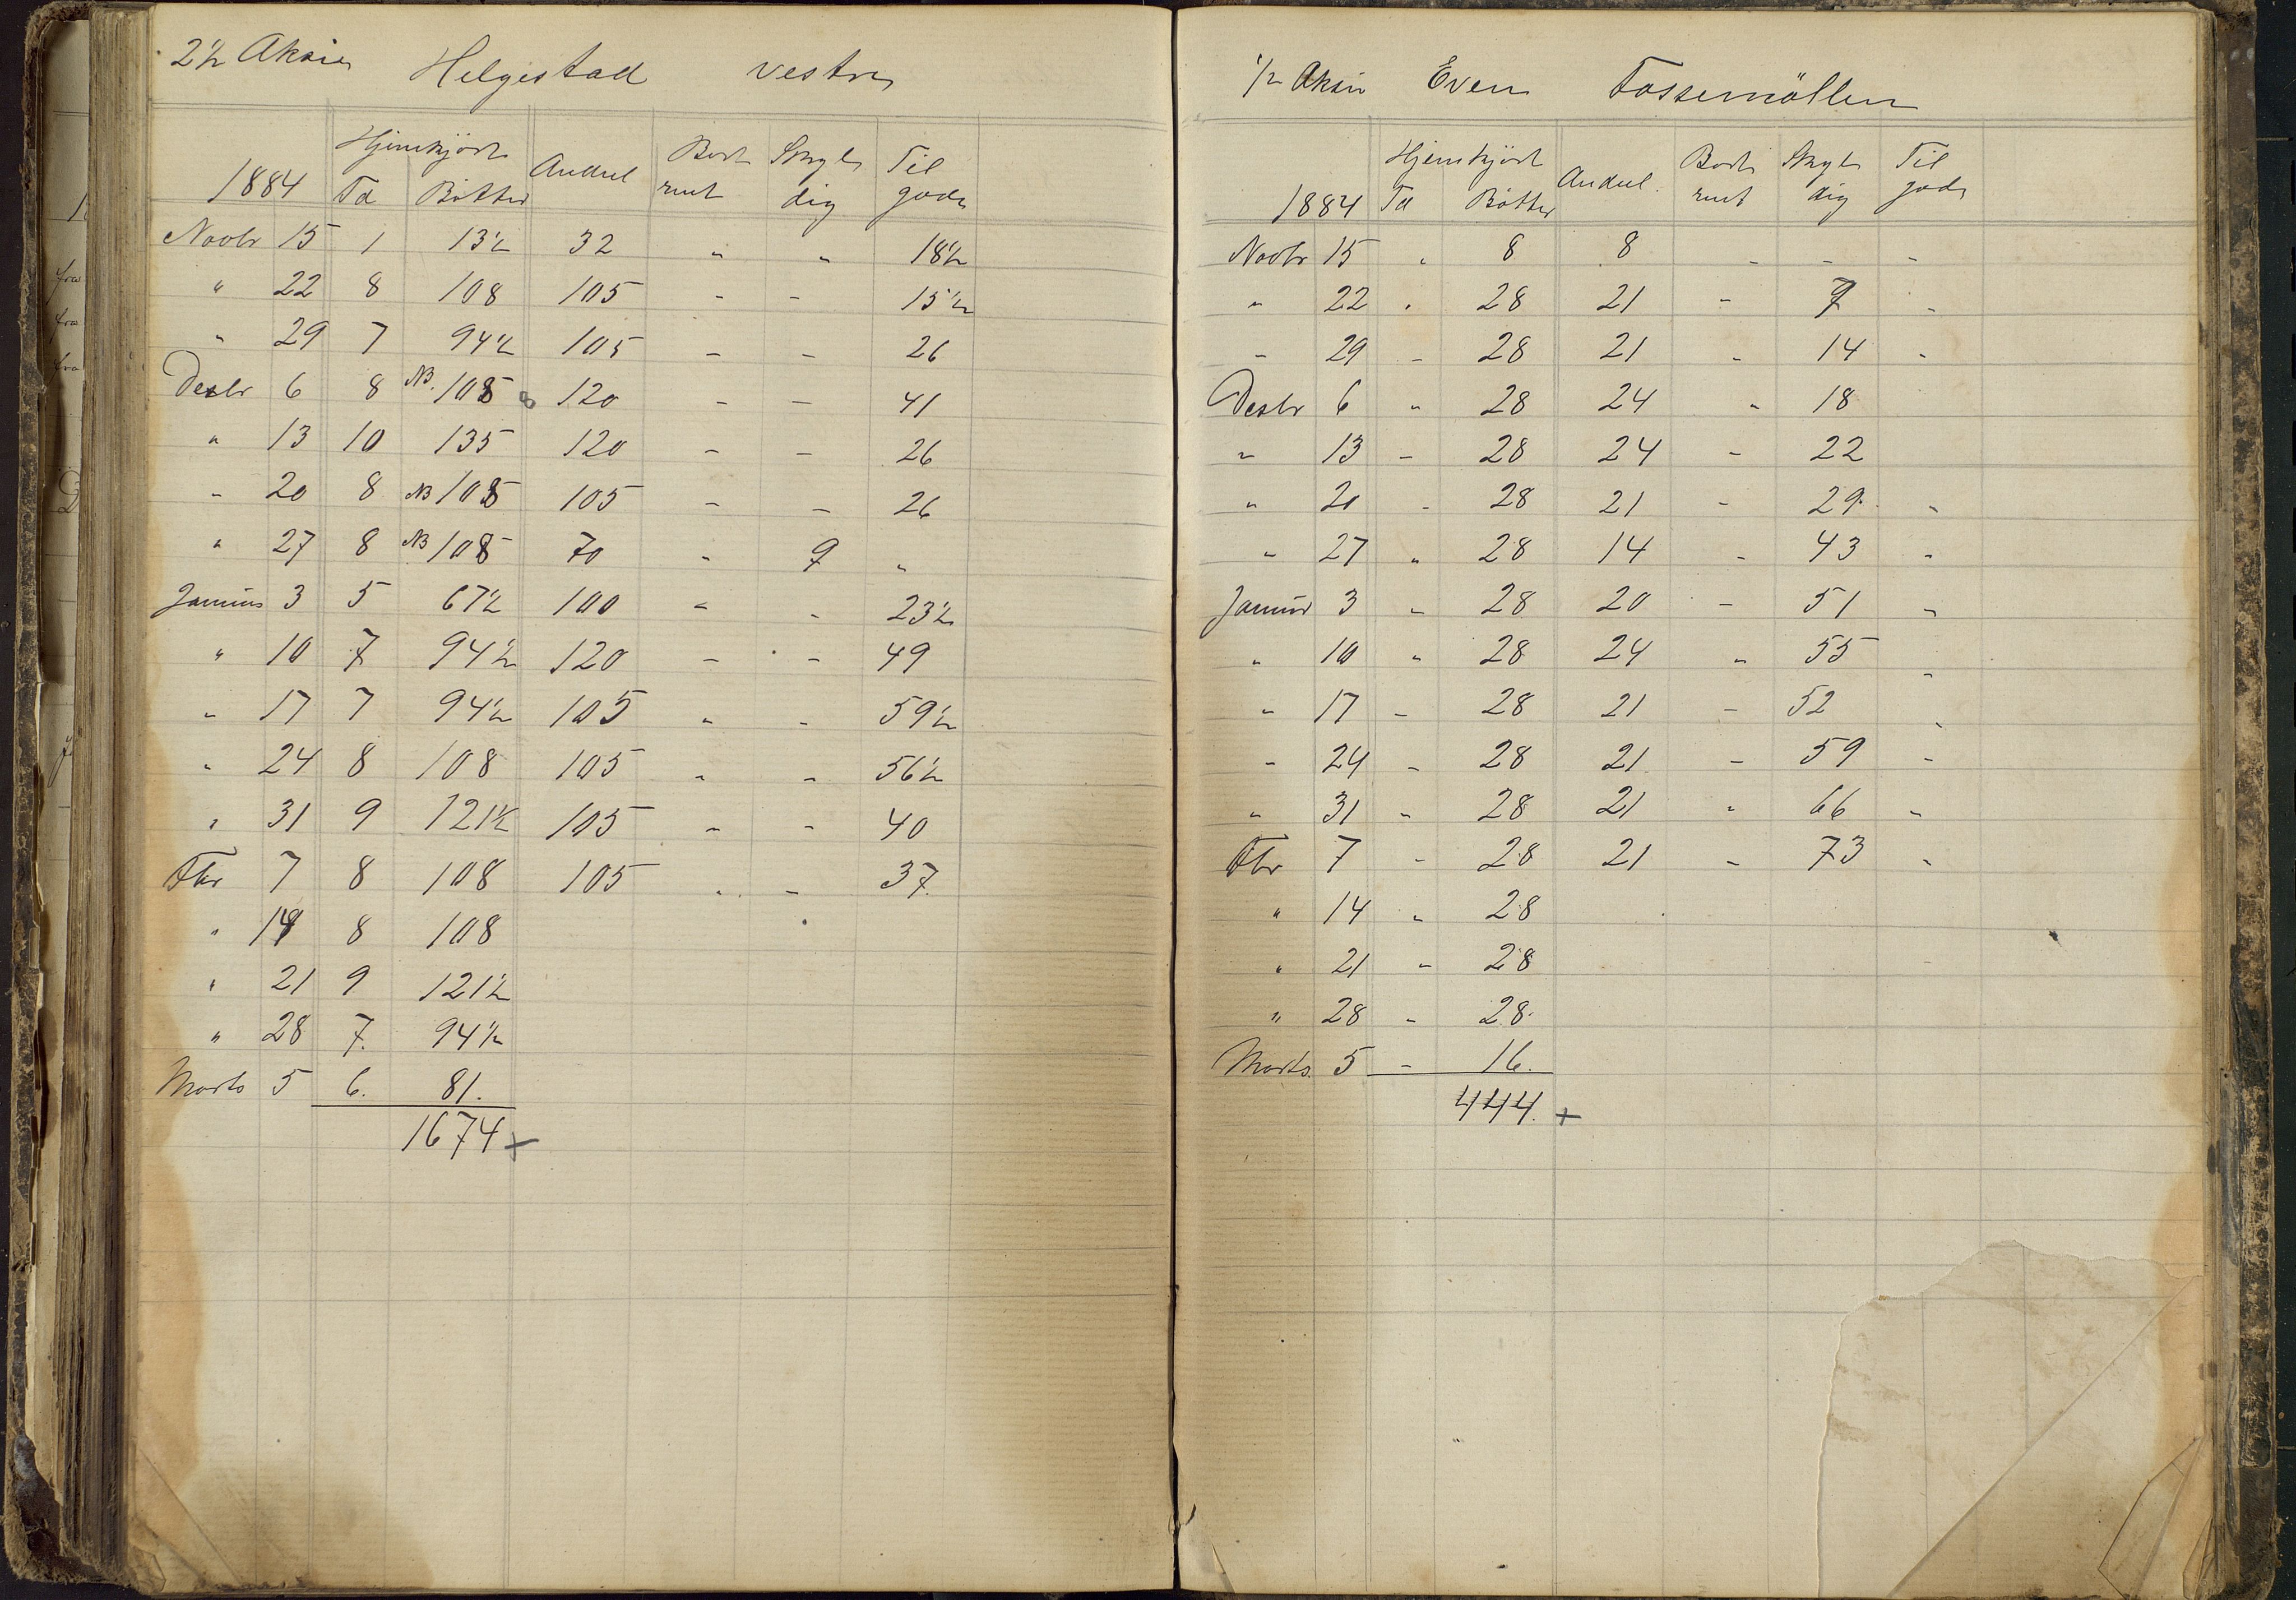 2 1/2 Aksier Helgestad vestre
Hjemkjört Andeel Bort Skyl Til
1884 Td Bötter rent dig gode
Novbr 15 1 13 1/2 32 " " 18 1/2
" 22 8 108 105 - - 15 1/2
" 29 7 94 1/2 105 - - 26
Desbr 6 8 NB. 108 120 - - 41
" 13 10 135 120 - - 26
" 20 8 NB 108 105 - - 26
" 27 8 NB 108 70 " 9 "
Januar 3 5 67 1/2 100 " - 23 1/2
" 10 7 94 1/2 120 - - 49
" 17 7 94 1/2 105 " - 59 1/2
" 24 8 108 105 " " 56 1/2
" 31 9 121 1/2 105 - - 40
Fbr 7 8 108 105 . - 37.
" 14 8 108
" 21 9 121 1/2
" 28 7. 94 1/2
Marts 5 6. 81.
1674 +
1/2 Aksie Even Fossemöllen
Hjemkjört Andeel. Bort Skyl Til
1884 Td Bötter rent dig gode
Novbr 15 " 8 8 - - -
" 22 " 28 21 - 7 -
" 29 - 28 21 - 14 -
Desbr 6 " 28 24 " 18
" 13 - 28 24 - 22
" 20 - 28 21 - 29. -
" 27 " 28 14 - 43 -
Januar 3 " 28 20 - 51 -
" 10 " 28 24 " 55 -
" 17 - 28 21 - 52 -
" 24 - 28 21 - 59 -
" 31 - 28 21 - 66 -
Fbr 7 - 28 21 - 73 -
" 14 - 28
" 21 - 28
" 28 - 28.
Marts. 5 - 16.
444. +